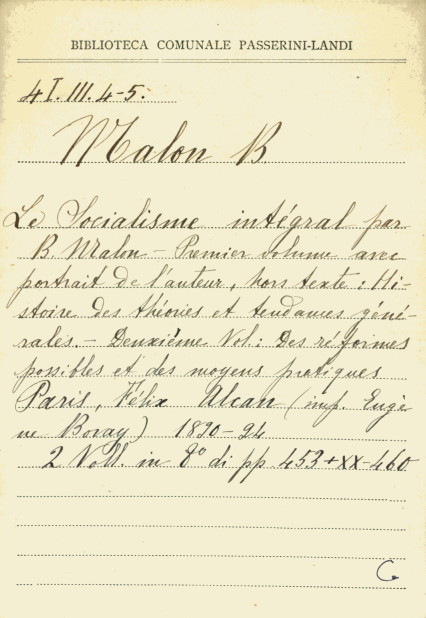 BIBLIOTECA COMUNALE PASSERINI-LANDI
4 I. III. 4-5.
Malon B
Le Socialisme intégral par
B. Malon – Premier volume avec
portrait de l'auteur, hors texte: Hi-
stoire des théories et tendances géné-
rales. – Deuxième Vol: Des réformes
possibles et des moyens pratiques
Paris, Félix Alcan (imp. Eugè
ne Boray) 1890-94
2 Voll. in 8° di pp 453+XX-460
G